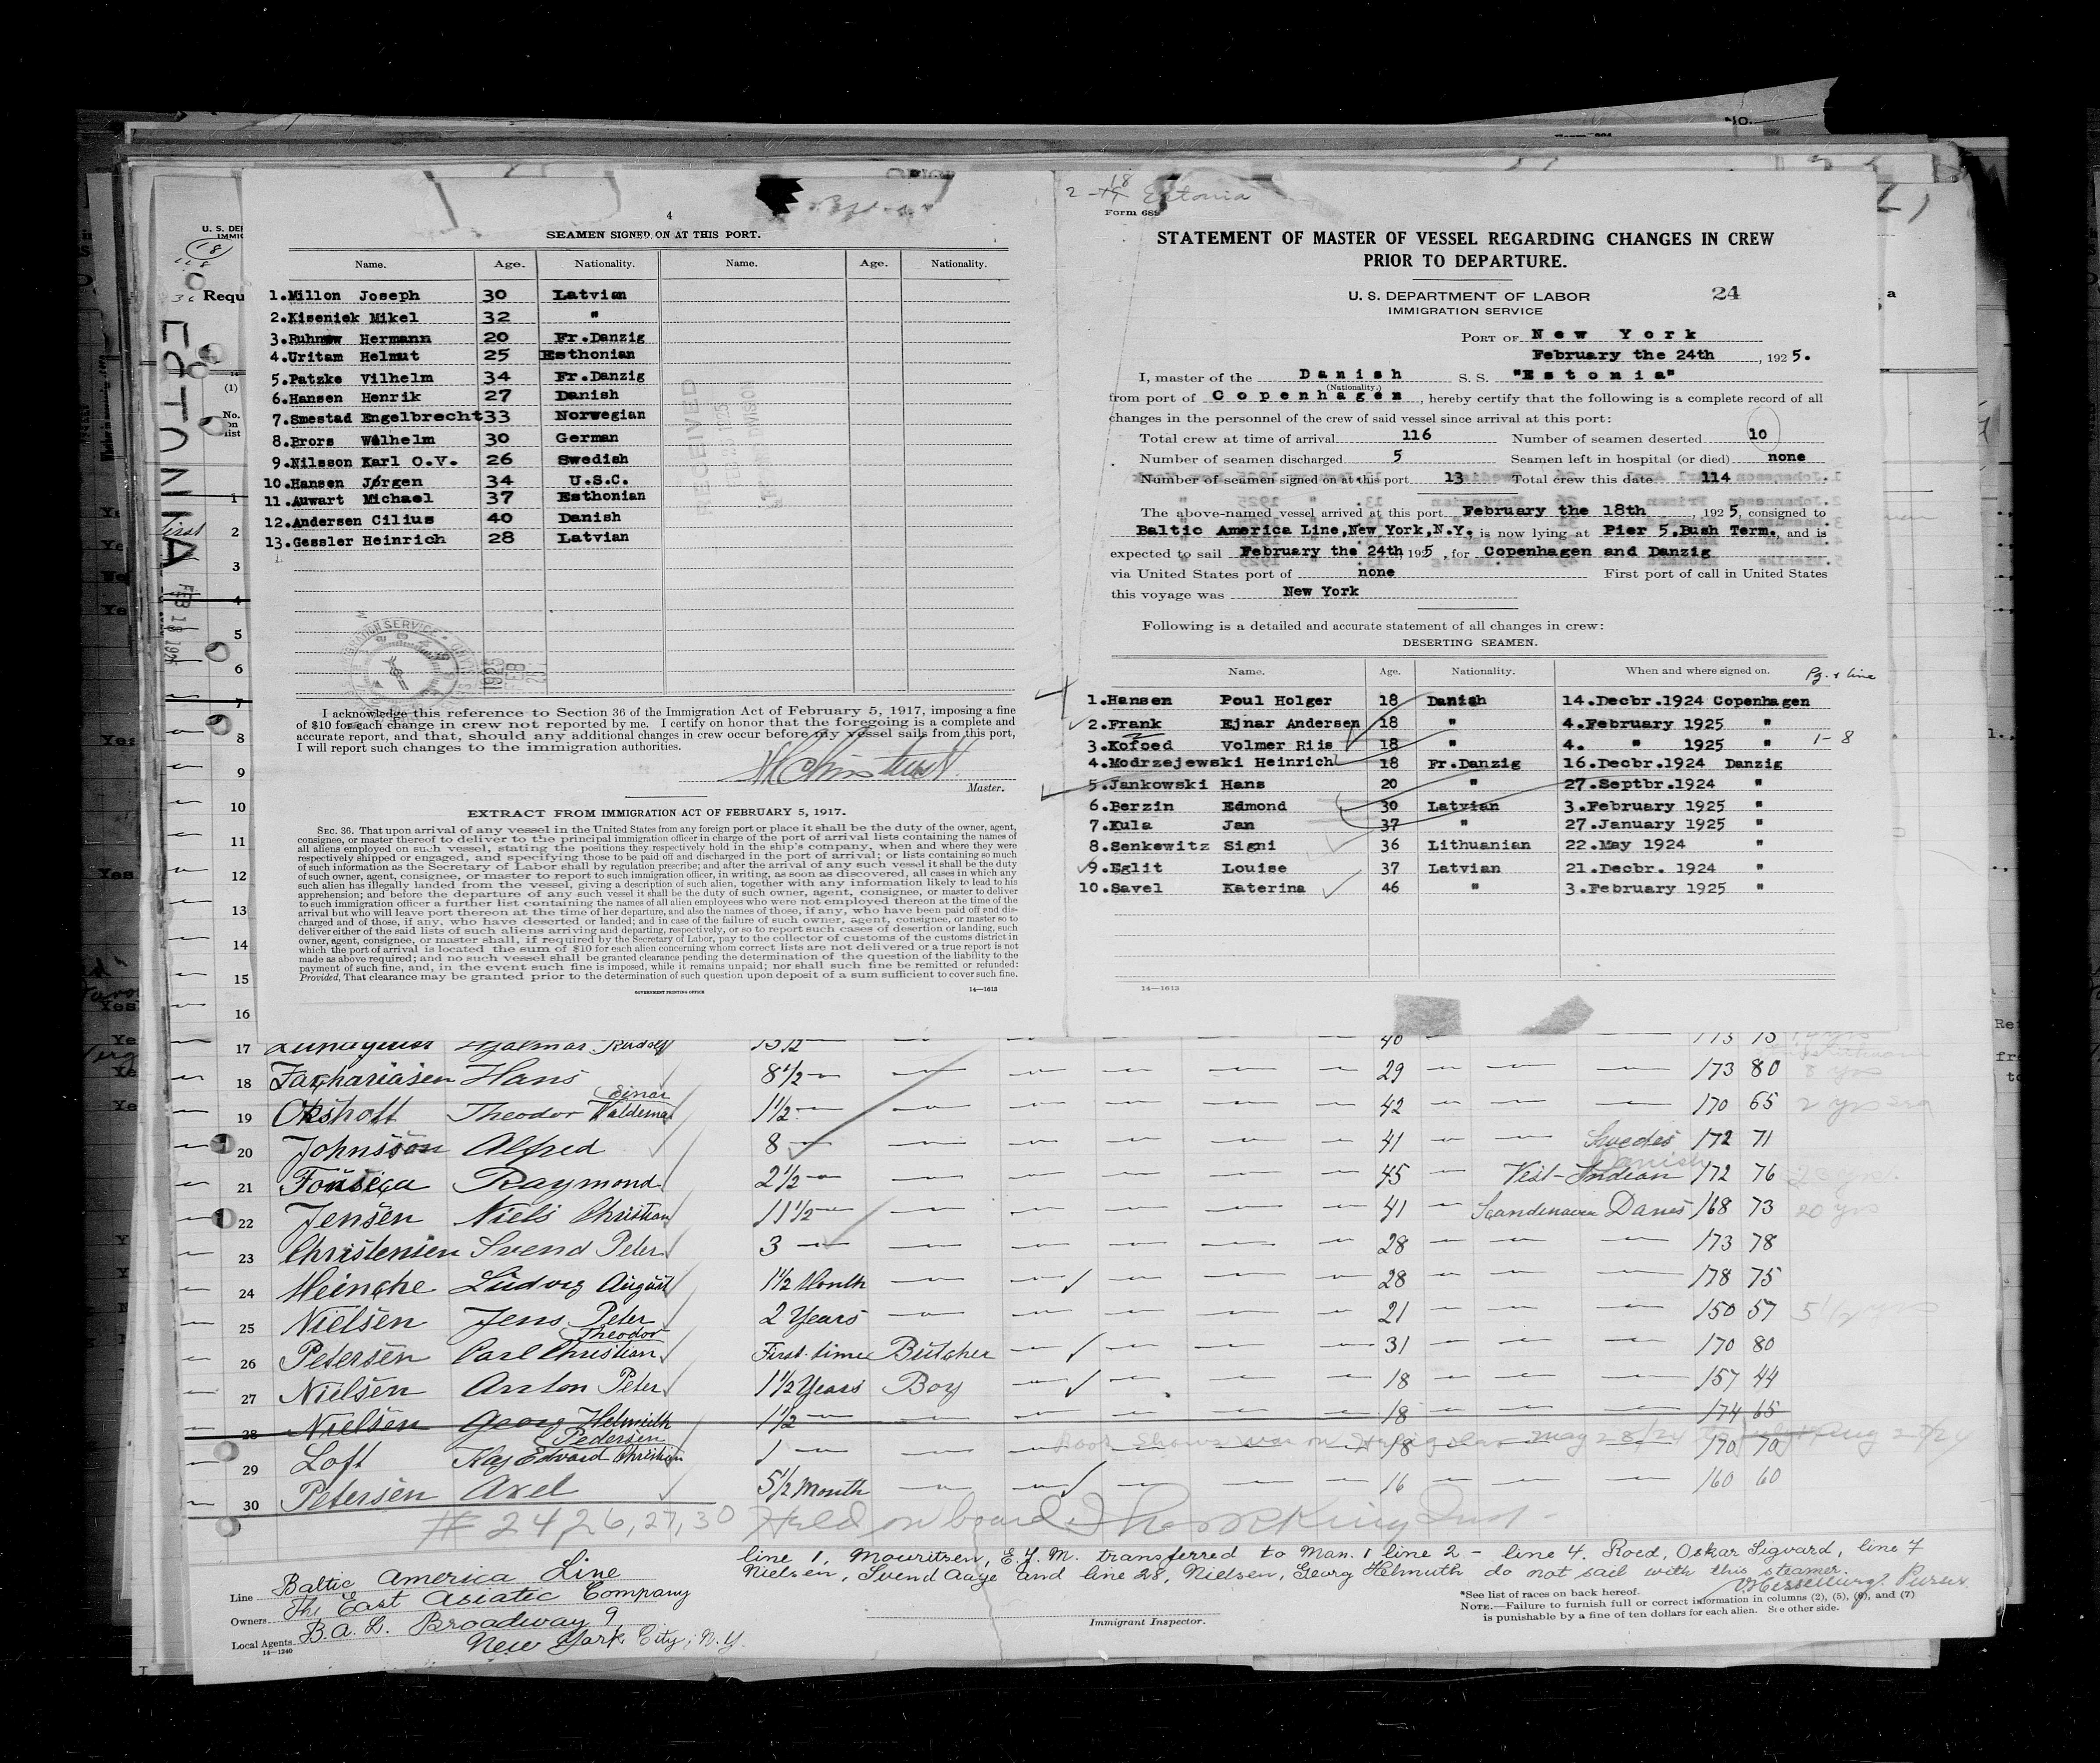 4
SEAMEN SIGNED ON AT THIS PORT.
Name. Age. Nationality. Name. Age. Nationality.
1.Millon Joseph 30 Latvian
2.Kiseniek Mikel 32 "
3.Ruhnow Hermann 20 Fr.Danzig
4.Uritam Helmut 25 Esthonian
5.Patzke Vilhelm 34 Fr.Danzig
6.Hansen Henrik 27 Danish
7.Smestad Engelbrecht 33 Norwegian
8.Brors Wilhelm 30 German
9.Nilsson Karl O.V. 26 Swedish
10.Hansen Jørgen 34 U.S.C.
11.Auwart Michael 37 Esthonian
12.Andersen Cilius 40 Danish
13.Gessler Heinrich 28 Latvian
RECEIVED
I acknowledge this reference to Section 36 of the Immigration Act of February 5, 1917, imposing a fine
of $10 for each change in crew not reported by me. I certify on honor that the foregoing is a complete and
accurate report, and that, should any additional changes in crew occur before my vessel sails from this port,
I will report such changes to the immigration authorities.
Master.
EXTRACT FROM IMMIGRATION ACT OF FEBRUARY 5, 1917.
SEC. 36. That upon arrival of any vessel in the United States from any foreign port or place it shall be the duty of the owner, agent,
consignee, or master thereof to deliver to the principal immigration officer in charge of the port of arrival lists containing the names of
all aliens employed on such vessel, stating the positions they respectively hold in the ship's company, when and where they were
respectively shipped or engaged, and specifying those to be paid off and discharged in the port of arrival; or lists containing so much
of such information as the Secretary of Labor shall by regulation prescribe; and after the arrival of any such vessel it shall be the duty
of such owner, agent, consignee, or master to report to such immigration officer, in writing, as soon as discovered, all cases in which any
such alien has illegally landed from the vessel, giving a description of such alien, together with any information likely to lead to his
apprehension; and before the departure of any such vessel it shall be the duty of such owner, agent, consignee, or master to deliver
to such immigration officer a further list containing the names of all alien employees who were not employed thereon at the time of the
arrival but who will leave port thereon at the time of her departure, and also the names of those, if any, who have been paid off and dis-
charged and of those, if any, who have deserted or landed; and in case of the failure of such owner, agent, consignee, or master so to
deliver either of the said lists of such aliens arriving and departing, respectively, or so to report such cases of desertion or landing, such
owner, agent, consignee, or master shall, if required by the Secretary of Labor, pay to the collector of customs of the customs district in
which the port of arrival is located the sum of $10 for each alien concerning whom correct lists are not delivered or a true report is not
made as above required; and no such vessel shall be granted clearance pending the determination of the question of the liability to the
payment of such fine, and, in the event such fine is imposed, while it remains unpaid; nor shall such fine be remitted or refunded:
Provided, That clearance may be granted prior to the determination of such question upon deposit of a sum sufficient to cover such fine.
GOVERNMENT PRINTING OFFICE 14—1613
Estonia
Form 689
STATEMENT OF MASTER OF VESSEL REGARDING CHANGES IN CREW
PRIOR TO DEPARTURE.
U. S. DEPARTMENT OF LABOR
IMMIGRATION SERVICE
24
PORT OF New York
February the 24th, 1925.
I, master of the Danish S. S. "Estonia"
(Nationality.)
from port of Copenhagen, hereby certify that the following is a complete record of all
changes in the personnel of the crew of said vessel since arrival at this port:
Total crew at time of arrival 116 Number of seamen deserted 10
Number of seamen discharged 5 Seamen left in hospital (or died) none
Number of seamen signed on at this port 13 Total crew this date 114
The above-named vessel arrived at this port February the 18th, 1925, consigned to
Baltic America Line,New York,N.Y. is now lying at Pier 5.Bush Term., and is
expected to sail February the 24th, 1925, for Copenhagen and Danzig
via United States port of none First port of call in United States
this voyage was New York
Following is a detailed and accurate statement of all changes in crew:
DESERTING SEAMEN.
Name. Age. Nationality. When and where signed on. Pg. & line
1.Hansen Poul Holger 18 Danish 14.Decbr.1924 Copenhagen
2.Frank Ejnar Andersen 18 " 4.February 1925 "
3.Kofoed Volmer Riis 18 " 4. " 1925 " 1-8
4.Modrzejewski Heinrich 18 Fr.Danzig 16.Decbr.1924 Danzig
5.Jankowski Hans 20 " 27.Septbr.1924 "
6.Berzin Edmond 30 Latvian 3.February 1925 "
7.Kula Jan 37 " 27.January 1925 "
8.Senkewitz Signi 36 Lithuanian 22.May 1924 "
9.Eglit Louise 37 Latvian 21.Decbr. 1924 "
10.Savel Katerina 46 " 3.February 1925 "
14—1613
ESTONIA
FEB 18 1925
17 Hjalmar Rudolf 40
18 Zachariasen Hans 8½ 29 173 80 8 yrs
19 Oksholt Theodor Einar Valdemar 1½ 42 170 65 2 yrs
20 Johnsson Alfred 8 41 Swedes 172 71
21 Fonseca Raymond 2½ 45 Vest-Indian Danish 172 76
22 Jensen Niels Christian 11½ 41 Scandinavien Danes 168 73 20 yrs
23 Christensen Svend Peter 3 28 173 78
24 Heincke Ludvig August 1½ Month 28 178 75
25 Nielsen Jens Peter 2 Years 21 150 57 5½ yrs
26 Petersen Carl Christian Theodor First time Butcher 31 170 80
27 Nielsen Anton Peter 1½ Years Boy 18 157 44
28 Nielsen Georg Helmuth 1½ 18 174 65
29 Loft Kaj Edvard Christian Pedersen 1 18 170 70
30 Petersen Axel 5½ Month 16 160 60
# 24, 26, 27, 30 Held on board
line 1, Mouritsen, E.Y.M. transferred to Man. 1 line 2 - line 4. Roed, Oskar Sigvard, line 7
Nielsen, Svend Aage and line 28, Nielsen, Georg Helmuth do not sail with this steamer.
Purser.
Line Baltic America Line
Owners The East Asiatic Company
Local Agents B.A.L. Broadway 9
New York City, N.Y.
14—1240
Immigrant Inspector.
*See list of races on back hereof.
NOTE.—Failure to furnish full or correct information in columns (2), (5), (6), and (7)
is punishable by a fine of ten dollars for each alien. See other side.